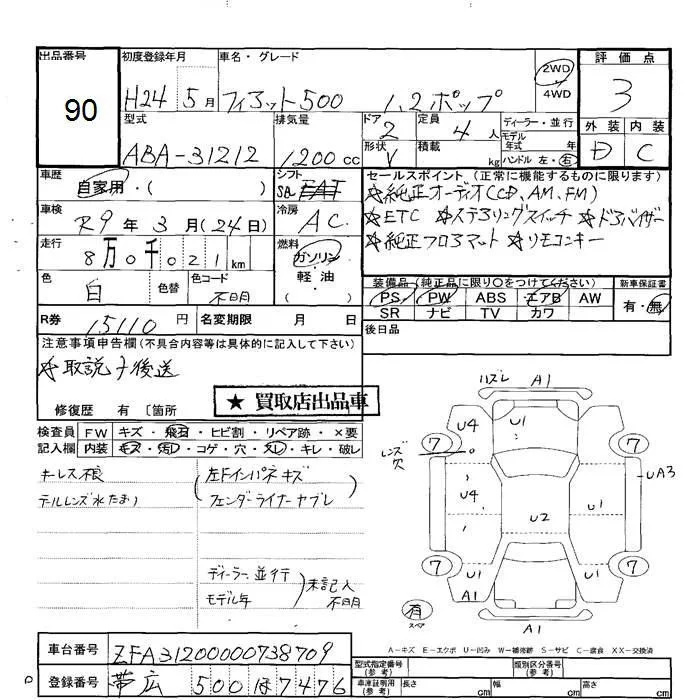 出品番号 90
初度登録年月 H24 5月
車名・グレード フィアット500 1.2ポップ
2WD
4WD
評価点 3
外装 内装
D C
型式 ABA-31212
排気量 1200cc
ドア 2
定員 4人
形状 V
積載 kg
ディーラー・並行
モデル年式 年
ハンドル 左・右
車歴 自家用・( )
シフト FAT
セールスポイント (正常に機能するものに限ります)
☆純正オーディオ(CD、AM、FM)
☆ETC ☆ステアリングスイッチ ☆ドアバイザー
☆純正フロアマット ☆リモコンキー
車検 R9年3月(24日)
冷房 AC
走行 8万0千021km
燃料 ガソリン・軽油・( )
色 白 色替
色コード 不明
装備品 (純正品に限り○をつけてください)
PS PW ABS エアB AW
SR ナビ TV カワ
新車保証書 有・無
R券 15110円
名変期限 月 日
後日品
注意事項申告欄(不具合内容等は具体的に記入して下さい)
☆取説 後送
修復歴 有 〔箇所
★ 買取店出品車
検査員記入欄
FW キズ・飛石・ヒビ割・リペア跡・×要
内装 キズ・汚レ・コゲ・穴・スレ・キレ・破レ
キーレス不良
テールレンズ水たまり
左Fインパネキズ
フェンダーライナーヤブレ
ディーラー、並行
モデル年
未記入
不明
ハズレ A1
U4 U1
7 7
レンズ穴
UA3
U4 U1
U2
7 7
U1 U1
A1
有
スペア
A1
A-キズ E-エクボ U-凹み W-補修跡 S-サビ C-腐食 XX-交換済
車台番号 ZFA31200000738709
登録番号 帯広 500 ほ 7476
型式指定番号(参考)
類別区分番号(参考)
車庫証明用(参考) 長さ cm 幅 cm 高さ cm